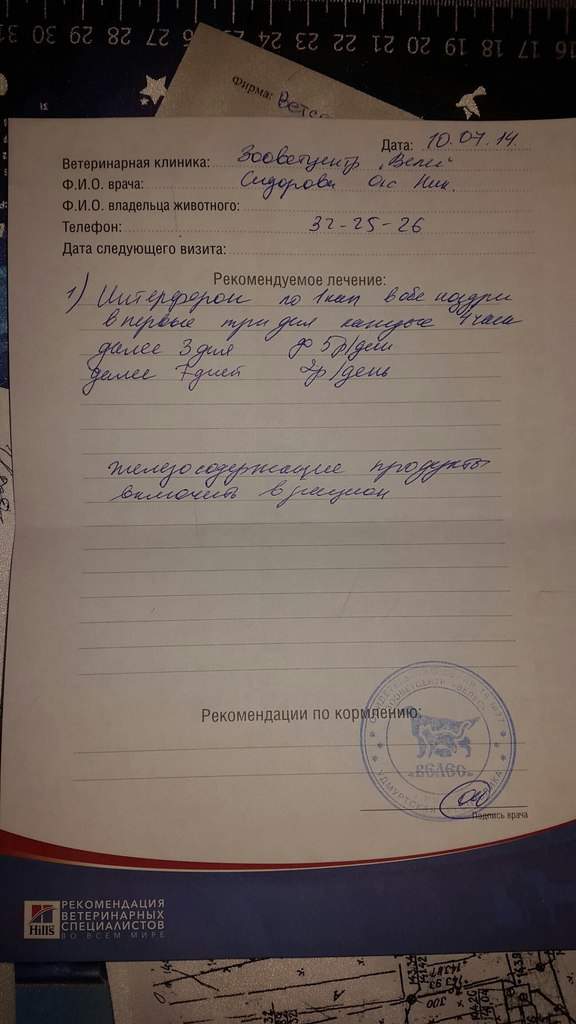 31 30 29 28 27 26 25 24 23 22 21 20 19 18 17 16
Фирма: Ветсе
Дата: 10.07.14
Ветеринарная клиника: Зооветцентр „Велес"
Ф.И.О. врача: Сидорова Окс Ник.
Ф.И.О. владельца животного:
Телефон: 32-25-26
Дата следующего визита:
Рекомендуемое лечение:
1) Интерферон по 1кап в обе ноздри
в первые три дня каждые 4 часа
далее 3 дня 5р/день
далее 7 дней 2р/день
Железосодержащие продукты
включить в рацион
Рекомендации по кормлению:
ЗООВЕТЦЕНТР «ВЕЛЕС»
«ВЕЛЕС»
УДМУРТСКАЯ
Подпись врача
Hill's
РЕКОМЕНДАЦИЯ
ВЕТЕРИНАРНЫХ
СПЕЦИАЛИСТОВ
ВО ВСЕМ МИРЕ
300